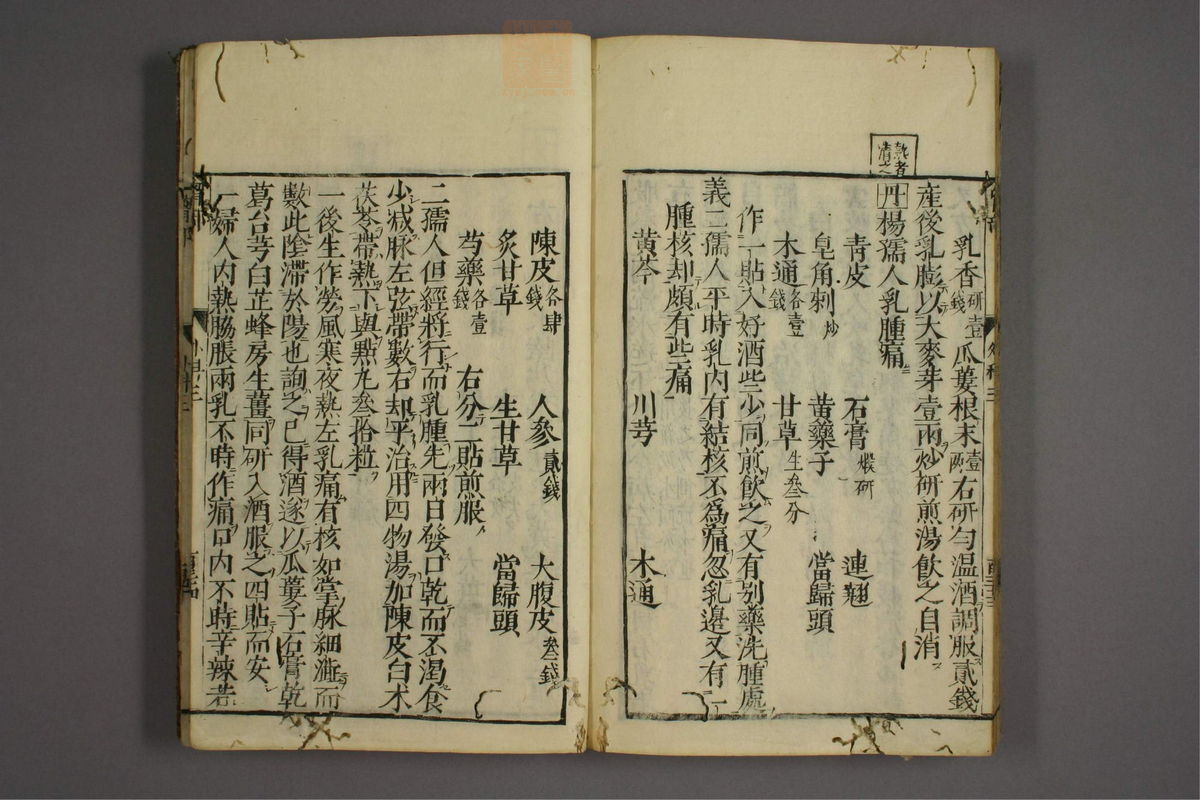 熱者
清之
乳香研壹錢瓜蔞根末壹兩右研勻溫酒調服貳錢
産後乳膨以大麥芽壹兩炒研煎湯飲之自消
丹楊孺人乳腫痛
青皮 石膏煅研 連翹
皂角刺炒 黄藥子 當歸頭
木通各壹錢 甘草生叄分
作一貼入好酒些少同煎飲之又有别藥洗腫處
義二孺人平時乳内有結核不爲痛忽乳邉又有一
腫核却頗有些痛
黄芩 川芎 木通
陳皮各肆錢 人參貳錢 大腹皮叄錢
炙甘草 生甘草 當歸頭
芍藥各壹錢 右分二貼煎服
二孺人但經將行而乳腫先兩日發口乾而不渴食
少减脉左弦帶數右却平治用四物湯加陳皮白术
茯苓帶熱下與點丸叄拾粒
一後生作勞風寒夜熱左乳痛有核如掌脉細澁而
數此陰滯於陽也詢之已得酒遂以瓜蔞子石膏乾
葛台芎白芷蜂房生薑同研入酒服之四貼而安
一婦人内熱脇脹兩乳不時作痛口内不時辛辣若